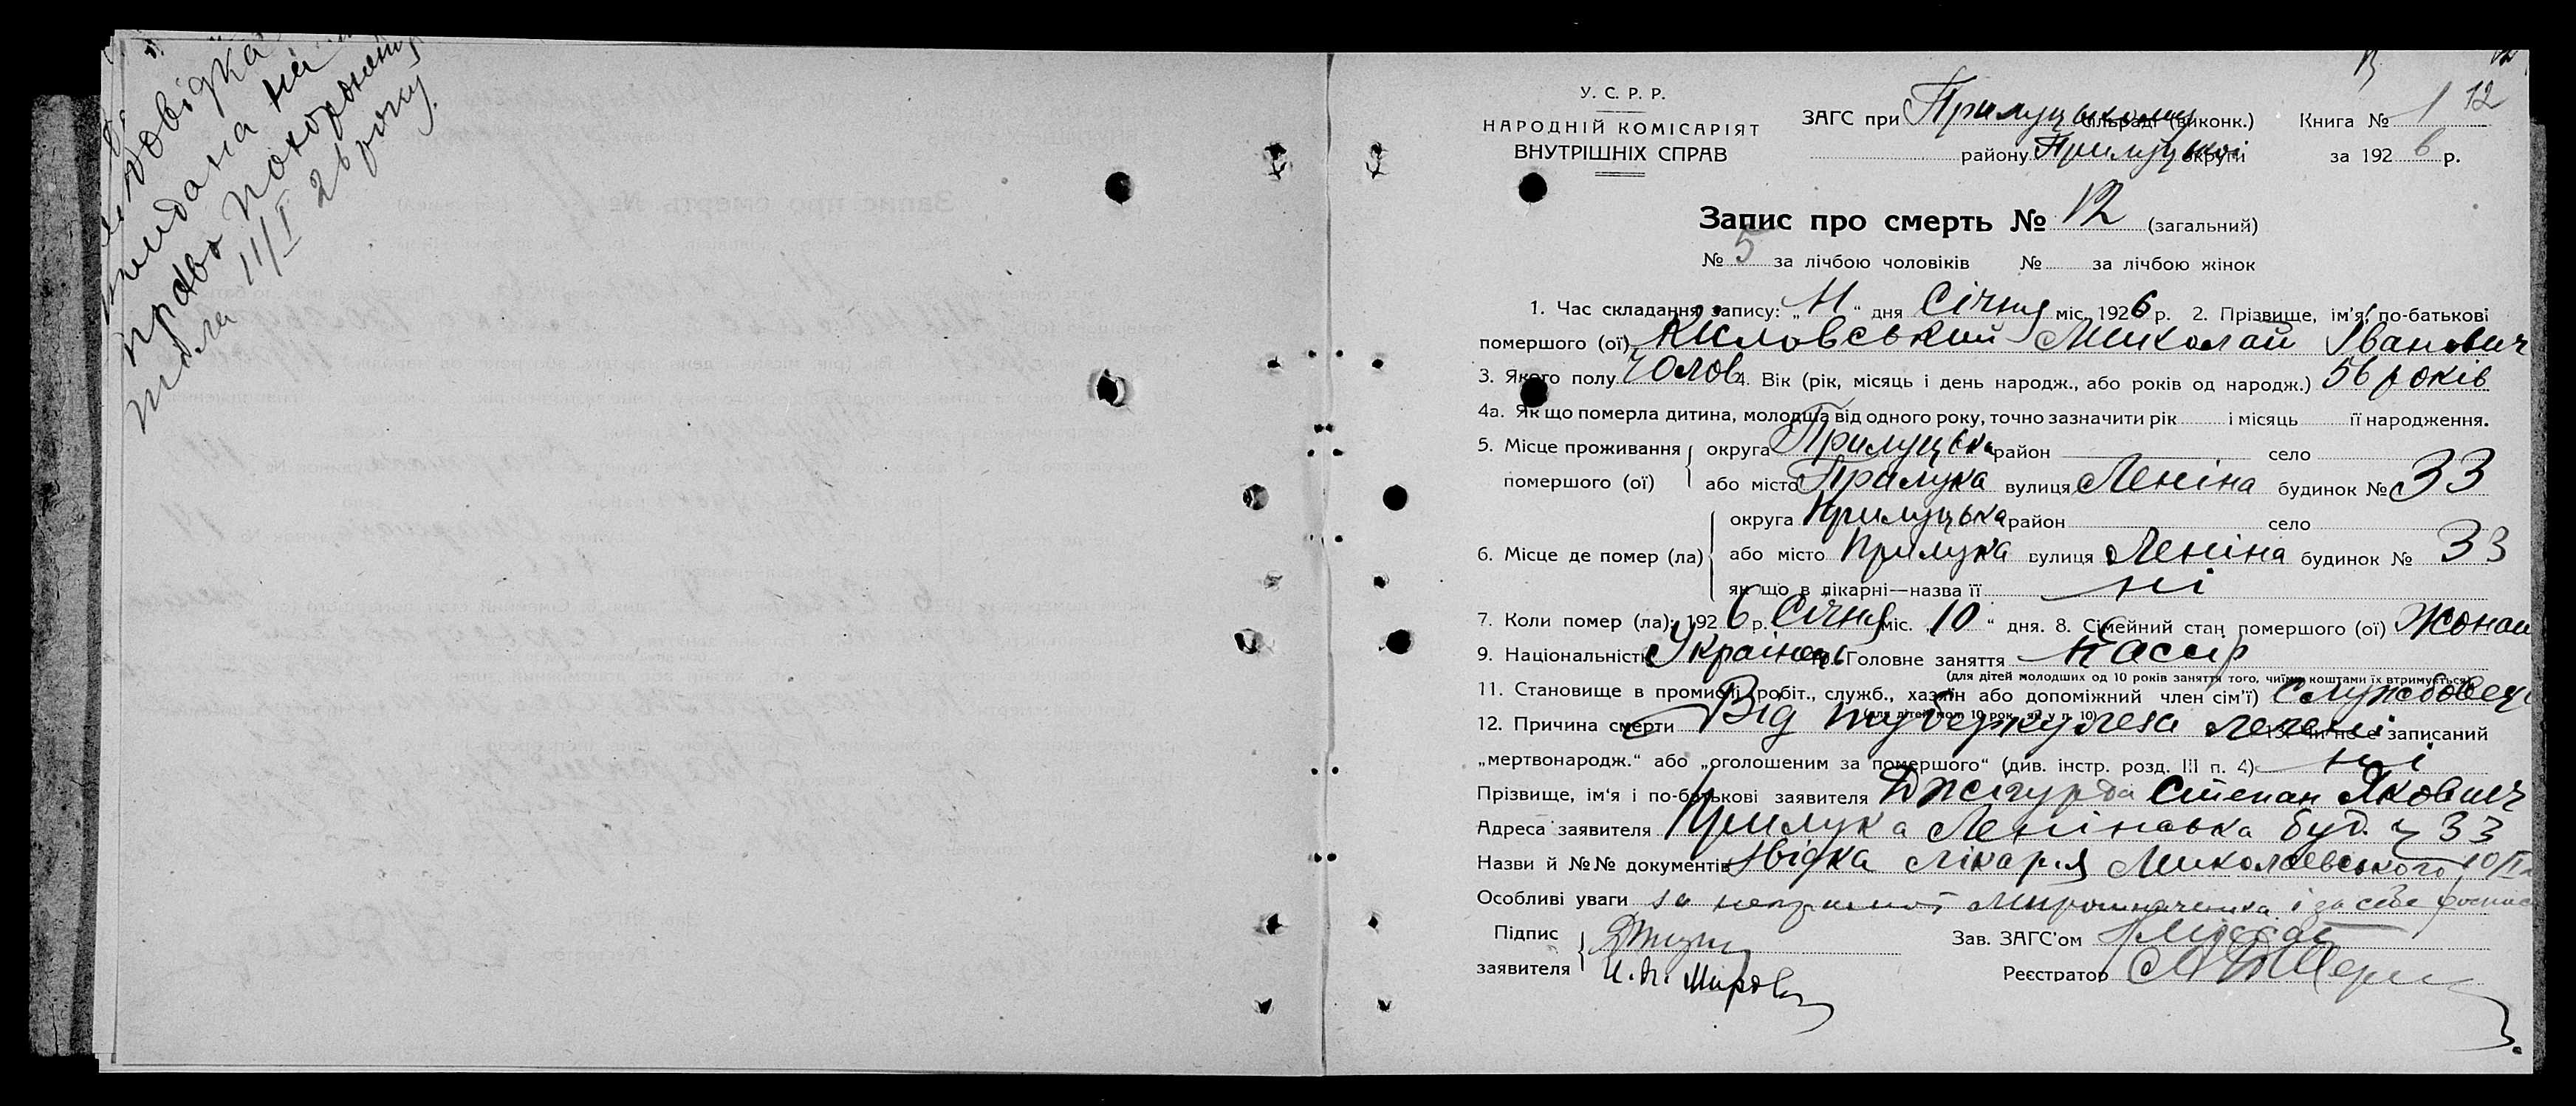 довідка
видана на
право похорону
тіла 11/I 26 року.
12
У. С. Р. Р.
НАРОДНІЙ КОМІСАРІЯТ
ВНУТРІШНІХ СПРАВ
ЗАГС при Прилуцькому сільраді (виконк.) Книга № 1
району Прилуцької округи за 1926 р.
Запис про смерть № 12 (загальний)
№ 5 за лічбою чоловіків № за лічбою жінок
1. Час складання запису: „11“ дня Січня міс. 1926 р. 2. Прізвище, ім'я, по-батькові
помершого (ої) Киловський Миколай Іванович
3. Якого полу Чолов 4. Вік (рік, місяць і день народж., або років од народж.) 56 років
4а. Як що померла дитина, молодша від одного року, точно зазначити рік і місяць її народження.
5. Місце проживання округа Прилуцька район село
помершого (ої) або місто Прилука вулиця Леніна будинок № 33
округа Прилуцька район село
6. Місце де помер (ла) або місто Прилука вулиця Леніна будинок № 33
як що в лікарні—назва її ні
7. Коли помер (ла): 1926 р. Січня міс. „10“ дня. 8. Сімейний стан помершого (ої) Жонат
9. Національність Українець 10. Головне заняття Касир
(для дітей молодших од 10 років заняття того, чиїми коштами їх втримується)
11. Становище в промислі (робіт., служб., хазяїн або допоміжний член сім'ї) Службовець
(для дітей мол. 10 рок. як у п. 10)
12. Причина смерти Від туберкульоза легень 13. Чи не є записаний
„мертвонародж.“ або „оголошеним за помершого“ (див. інстр. розд. III п. 4) ні
Прізвище, ім'я і по-батькові заявителя Джигурда Степан Якович
Адреса заявителя Прилука Ленінська буд. ч 33
Назви й №№ документів звідка лікаря Миколаєвського 10/I
Особливі уваги за неграмотного Мирошниченка і за себе росписався
Підпис
заявителя
Зав. ЗАГС'ом
Реєстратор